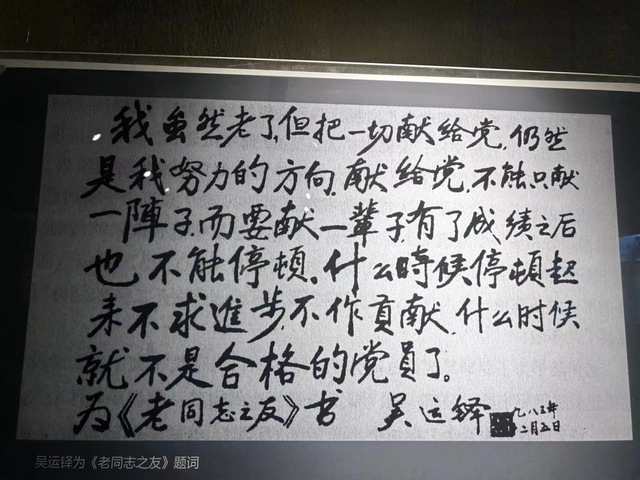 我虽然老了,但把一切献给党,仍然
是我努力的方向,献给党,不能只献
一陣子,而要献一辈子,有了成绩之后
也不能停頓。什么時候停頓起
来不求進步,不作貢献,什么时候
就不是合格的党員了。
为《老同志之友》书 吴运铎 一九八三年
二月五日
吴运铎为《老同志之友》题词